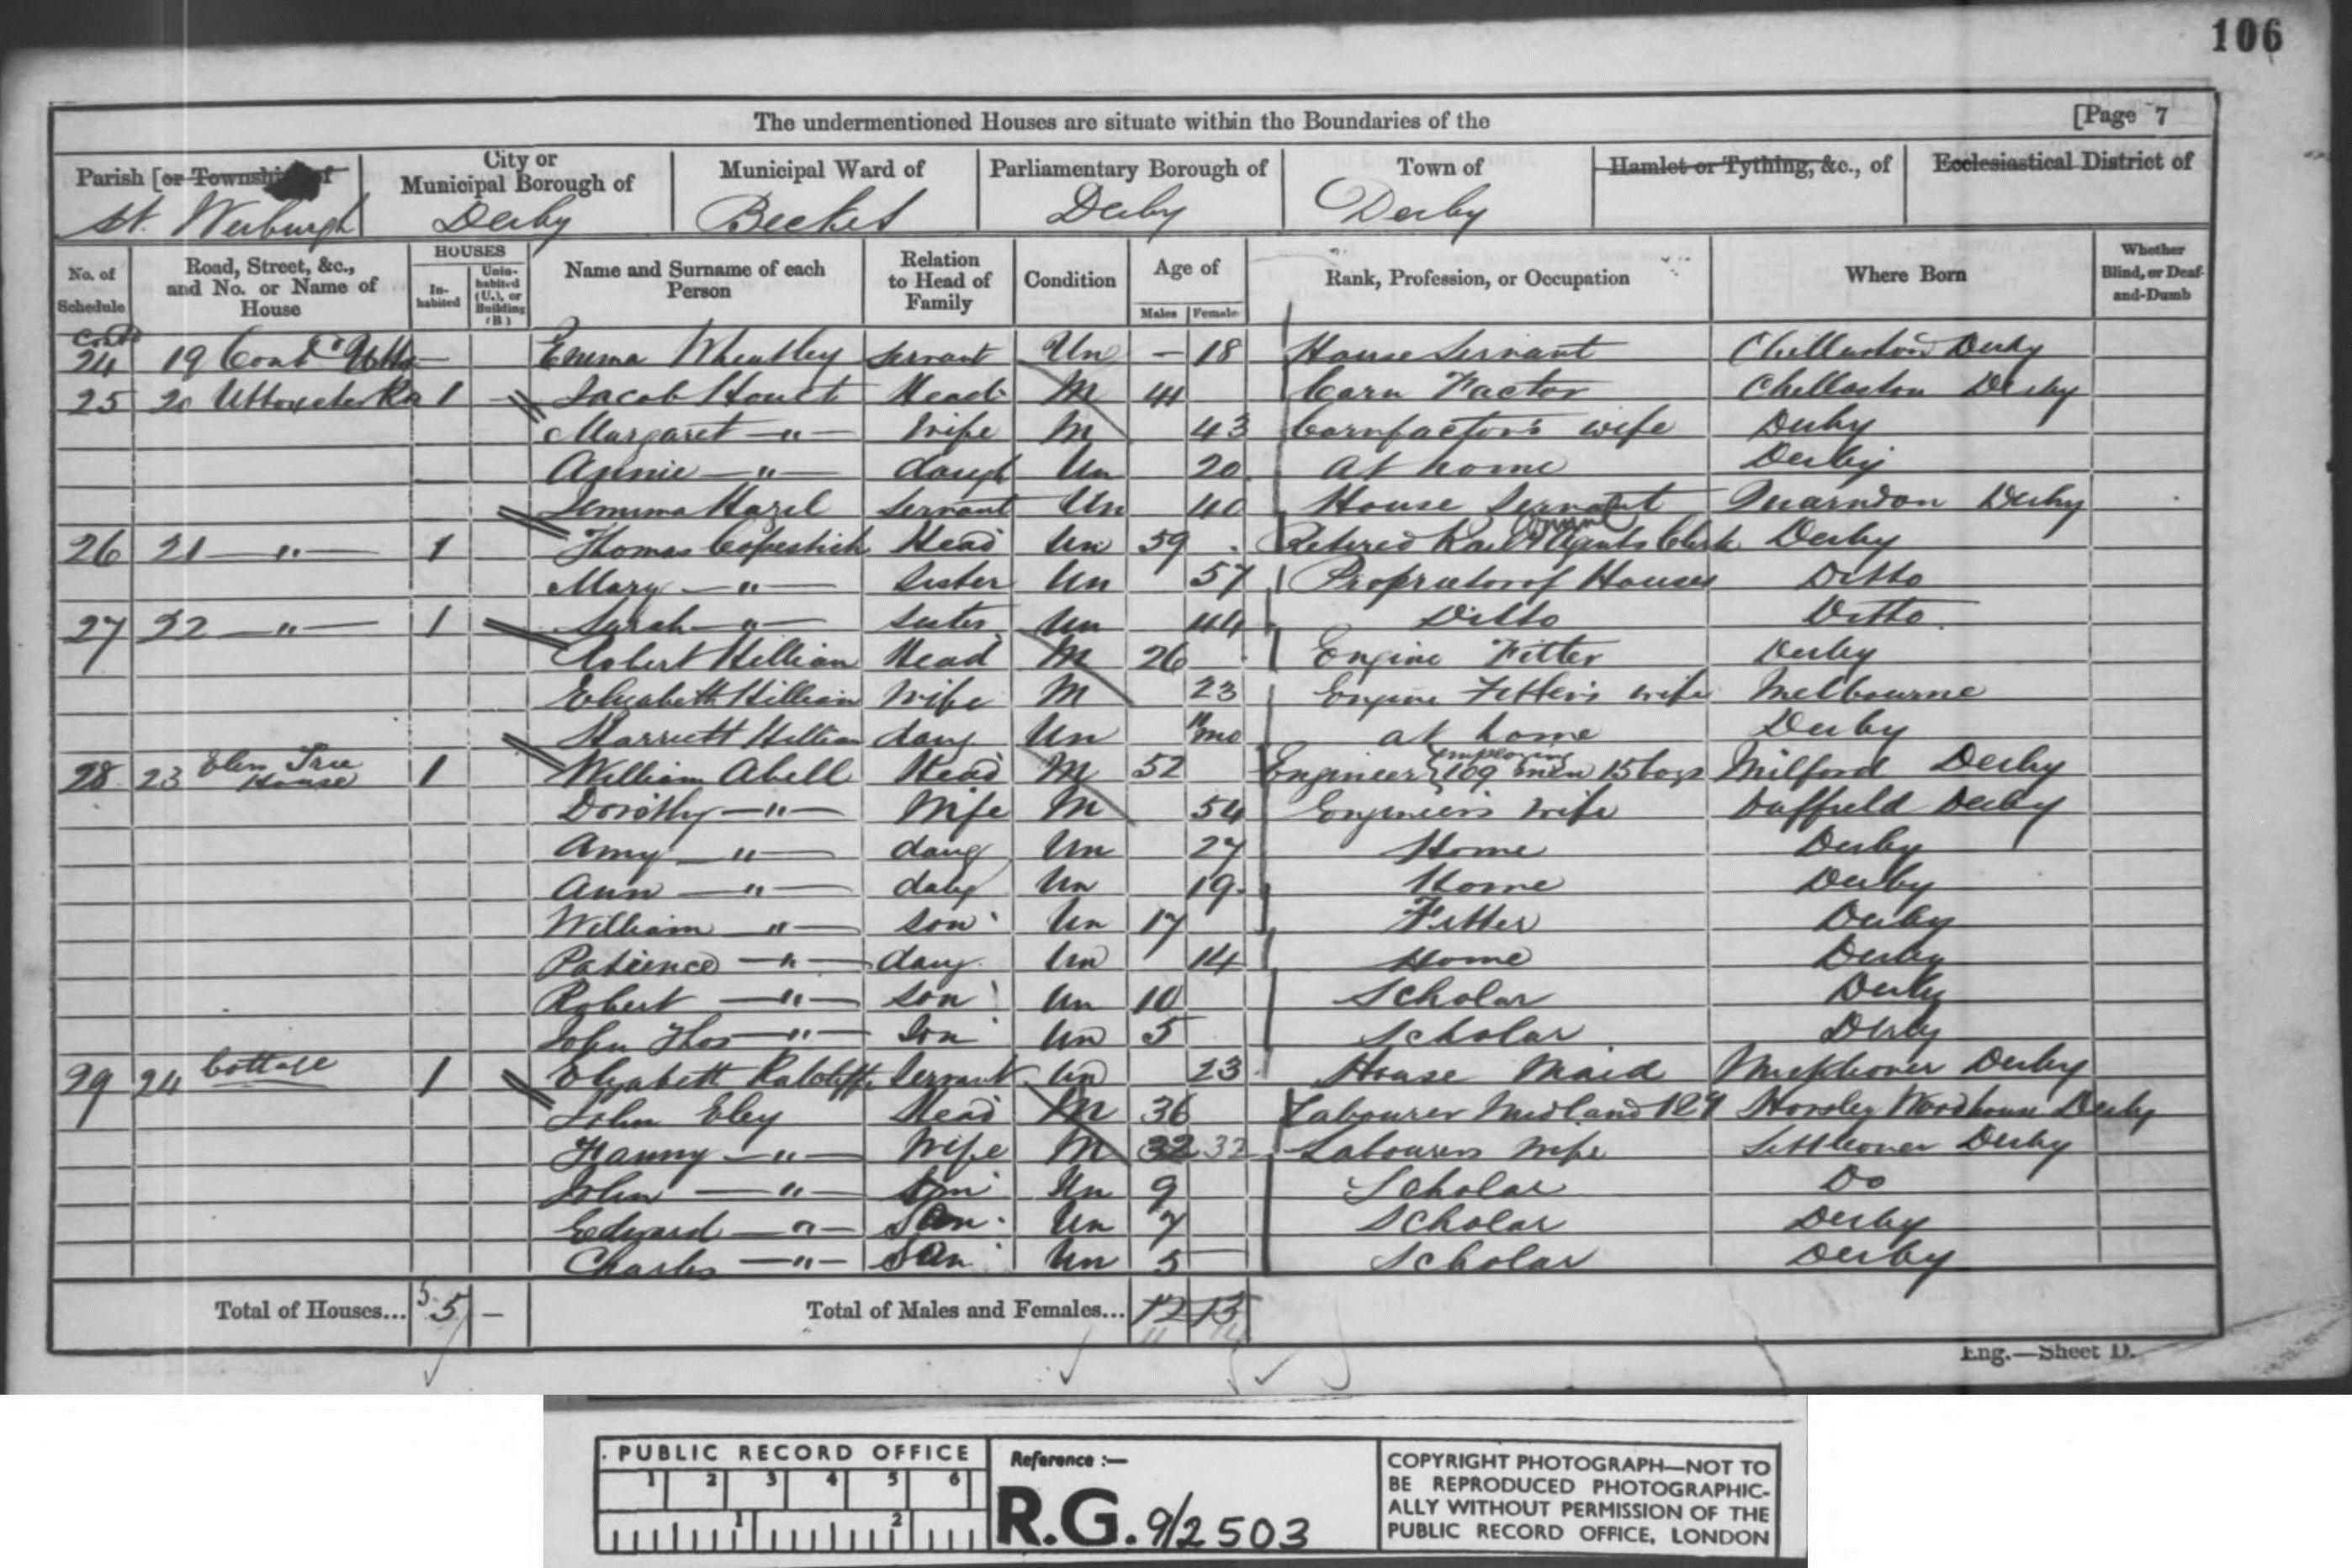 106
The undermentioned Houses are situate within the Boundaries of the [Page 7
Parish [or Township] of City or Municipal Borough of Municipal Ward of Parliamentary Borough of Town of Hamlet or Tything, &c., of Ecclesiastical District of
St. Werburgh Derby Becket Derby Derby
No. of Schedule Road, Street, &c., and No. or Name of House HOUSES In-habited Unin-habited (U.), or Building (B.) Name and Surname of each Person Relation to Head of Family Condition Age of Males Females Rank, Profession, or Occupation Where Born Whether Blind, or Deaf-and-Dumb
Contd
24 19 Contd — Emma Wheatley Servant Un — 18 House Servant Chellaston Derby
25 20 Uttoxeter Rd 1 Jacob Head M 41 Corn Factor Chellaston Derby
Margaret —"— Wife M 43 Cornfactor's wife Derby
Annie —"— daugh Un 20 at home Derby
Jemima Hazel Servant Un 40 House Servant Quarndon Derby
26 21 —"— 1 Thomas Copestick Head Un 59 Retired Agents Clerk Derby
Mary —"— Sister Un 57 Proprietor of Houses Ditto
27 22 —"— 1 Sarah —"— Sister Un 44 Ditto Ditto
Robert Hillian Head M 26 Engine Fitter Derby
Elizabeth Hillian Wife M 23 Engine Fitter's wife Melbourne
Harriett Hillian daug Un mo at home Derby
28 23 Elm Tree House 1 William Abell Head M 52 Engineer {employing 109 men 15 boys Milford Derby
Dorothy —"— Wife M 54 Engineers wife Duffield Derby
Amy —"— daug Un 27 Home Derby
Ann —"— daug Un 19 Home Derby
William —"— son Un 17 Fitter Derby
Patience —"— daug Un 14 Home Derby
Robert —"— son Un 10 Scholar Derby
John Thos —"— Son Un 5 Scholar Derby
29 24 Cottage 1 Elizabeth Ratcliffe Servant Un 23 House Maid Mickleover Derby
John Eley Head M 36 Labourer Midland Rly Horsley Woodhouse Derby
Fanny —"— Wife M 32 32 Labourers Wife Littleover Derby
John —"— Son Un 9 Scholar Do
Edward —"— Son Un 7 Scholar Derby
Charles —"— Son Un 5 Scholar Derby
Total of Houses... 5 5 — Total of Males and Females... 12 13
11 14
Eng.—Sheet D.
PUBLIC RECORD OFFICE
1 2 3 4 5 6
1 2
Reference :—
R.G. 9/2503
COPYRIGHT PHOTOGRAPH—NOT TO
BE REPRODUCED PHOTOGRAPHIC-
ALLY WITHOUT PERMISSION OF THE
PUBLIC RECORD OFFICE, LONDON